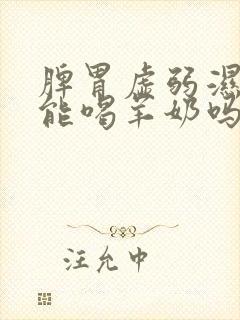 脾胃虚弱濕
能喝羊奶吗
汪允中